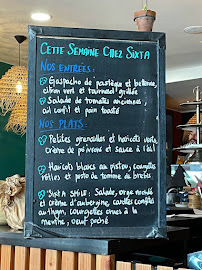 CETTE SEMAINE CHEZ SIXTA
NOS ENTRÉES:
Gaspacho de pastèque et betterave,
citron vert et tournesol grillé
Salade de tomates anciennes,
ail confit et pain toasté
NOS PLATS:
Petites grenailles et haricots verts,
crème de poivrons et sauce à l'ail
Haricots blancs au pistou, courgettes
rôties et pesto de tomme de brebis
SIXTA SMILE: Salade, orge mondé
et crème d'aubergine, carottes confites
au thym, courgettes crues à la
menthe, oeuf poché